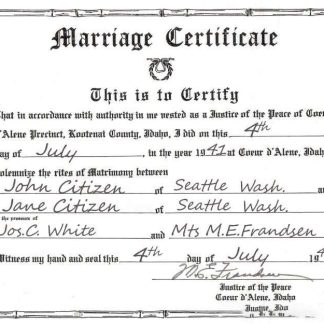 Marriage Certificate
This is to Certify
hat in accordance with authority in me nested as a Justice of the Peace of Coeu
d'Alene Precinct, Kootenai County, Idaho, I did on this 4th
ay of July, in the year 1941 at Coeur d'Alene, Idaho
olemnize the rites of Matrimony between
John Citizen of Seattle Wash.
Jane Citizen of Seattle Wash.
the presence of
Jos.C. White and Mts M.E.Frandsen
Witness my hand and seal this 4th day of July 194
M.E. Frandsen
Justice of the Peace
Coeur d'Alene, Idaho